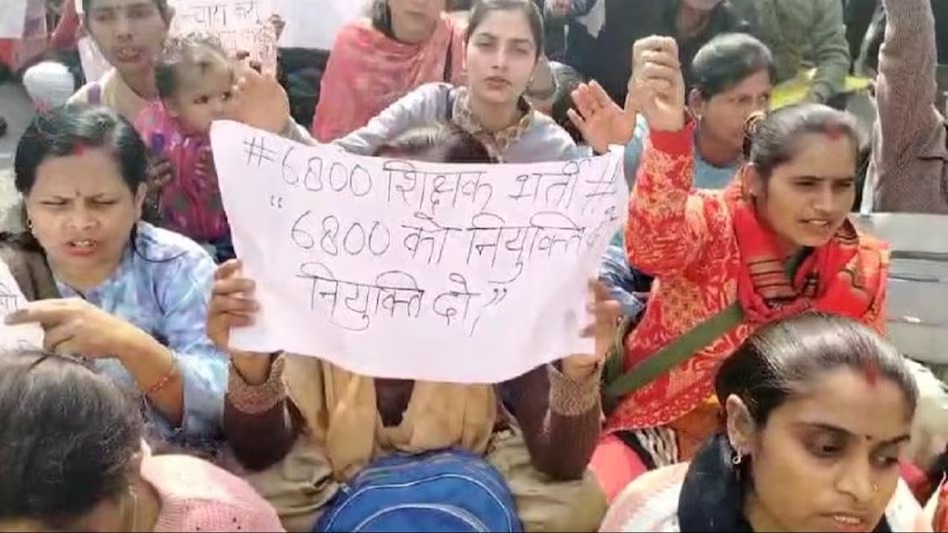 न्याय करो
#6800 शिक्षक भर्ती #
"6800 को नियुक्ति दो
नियुक्ति दो"